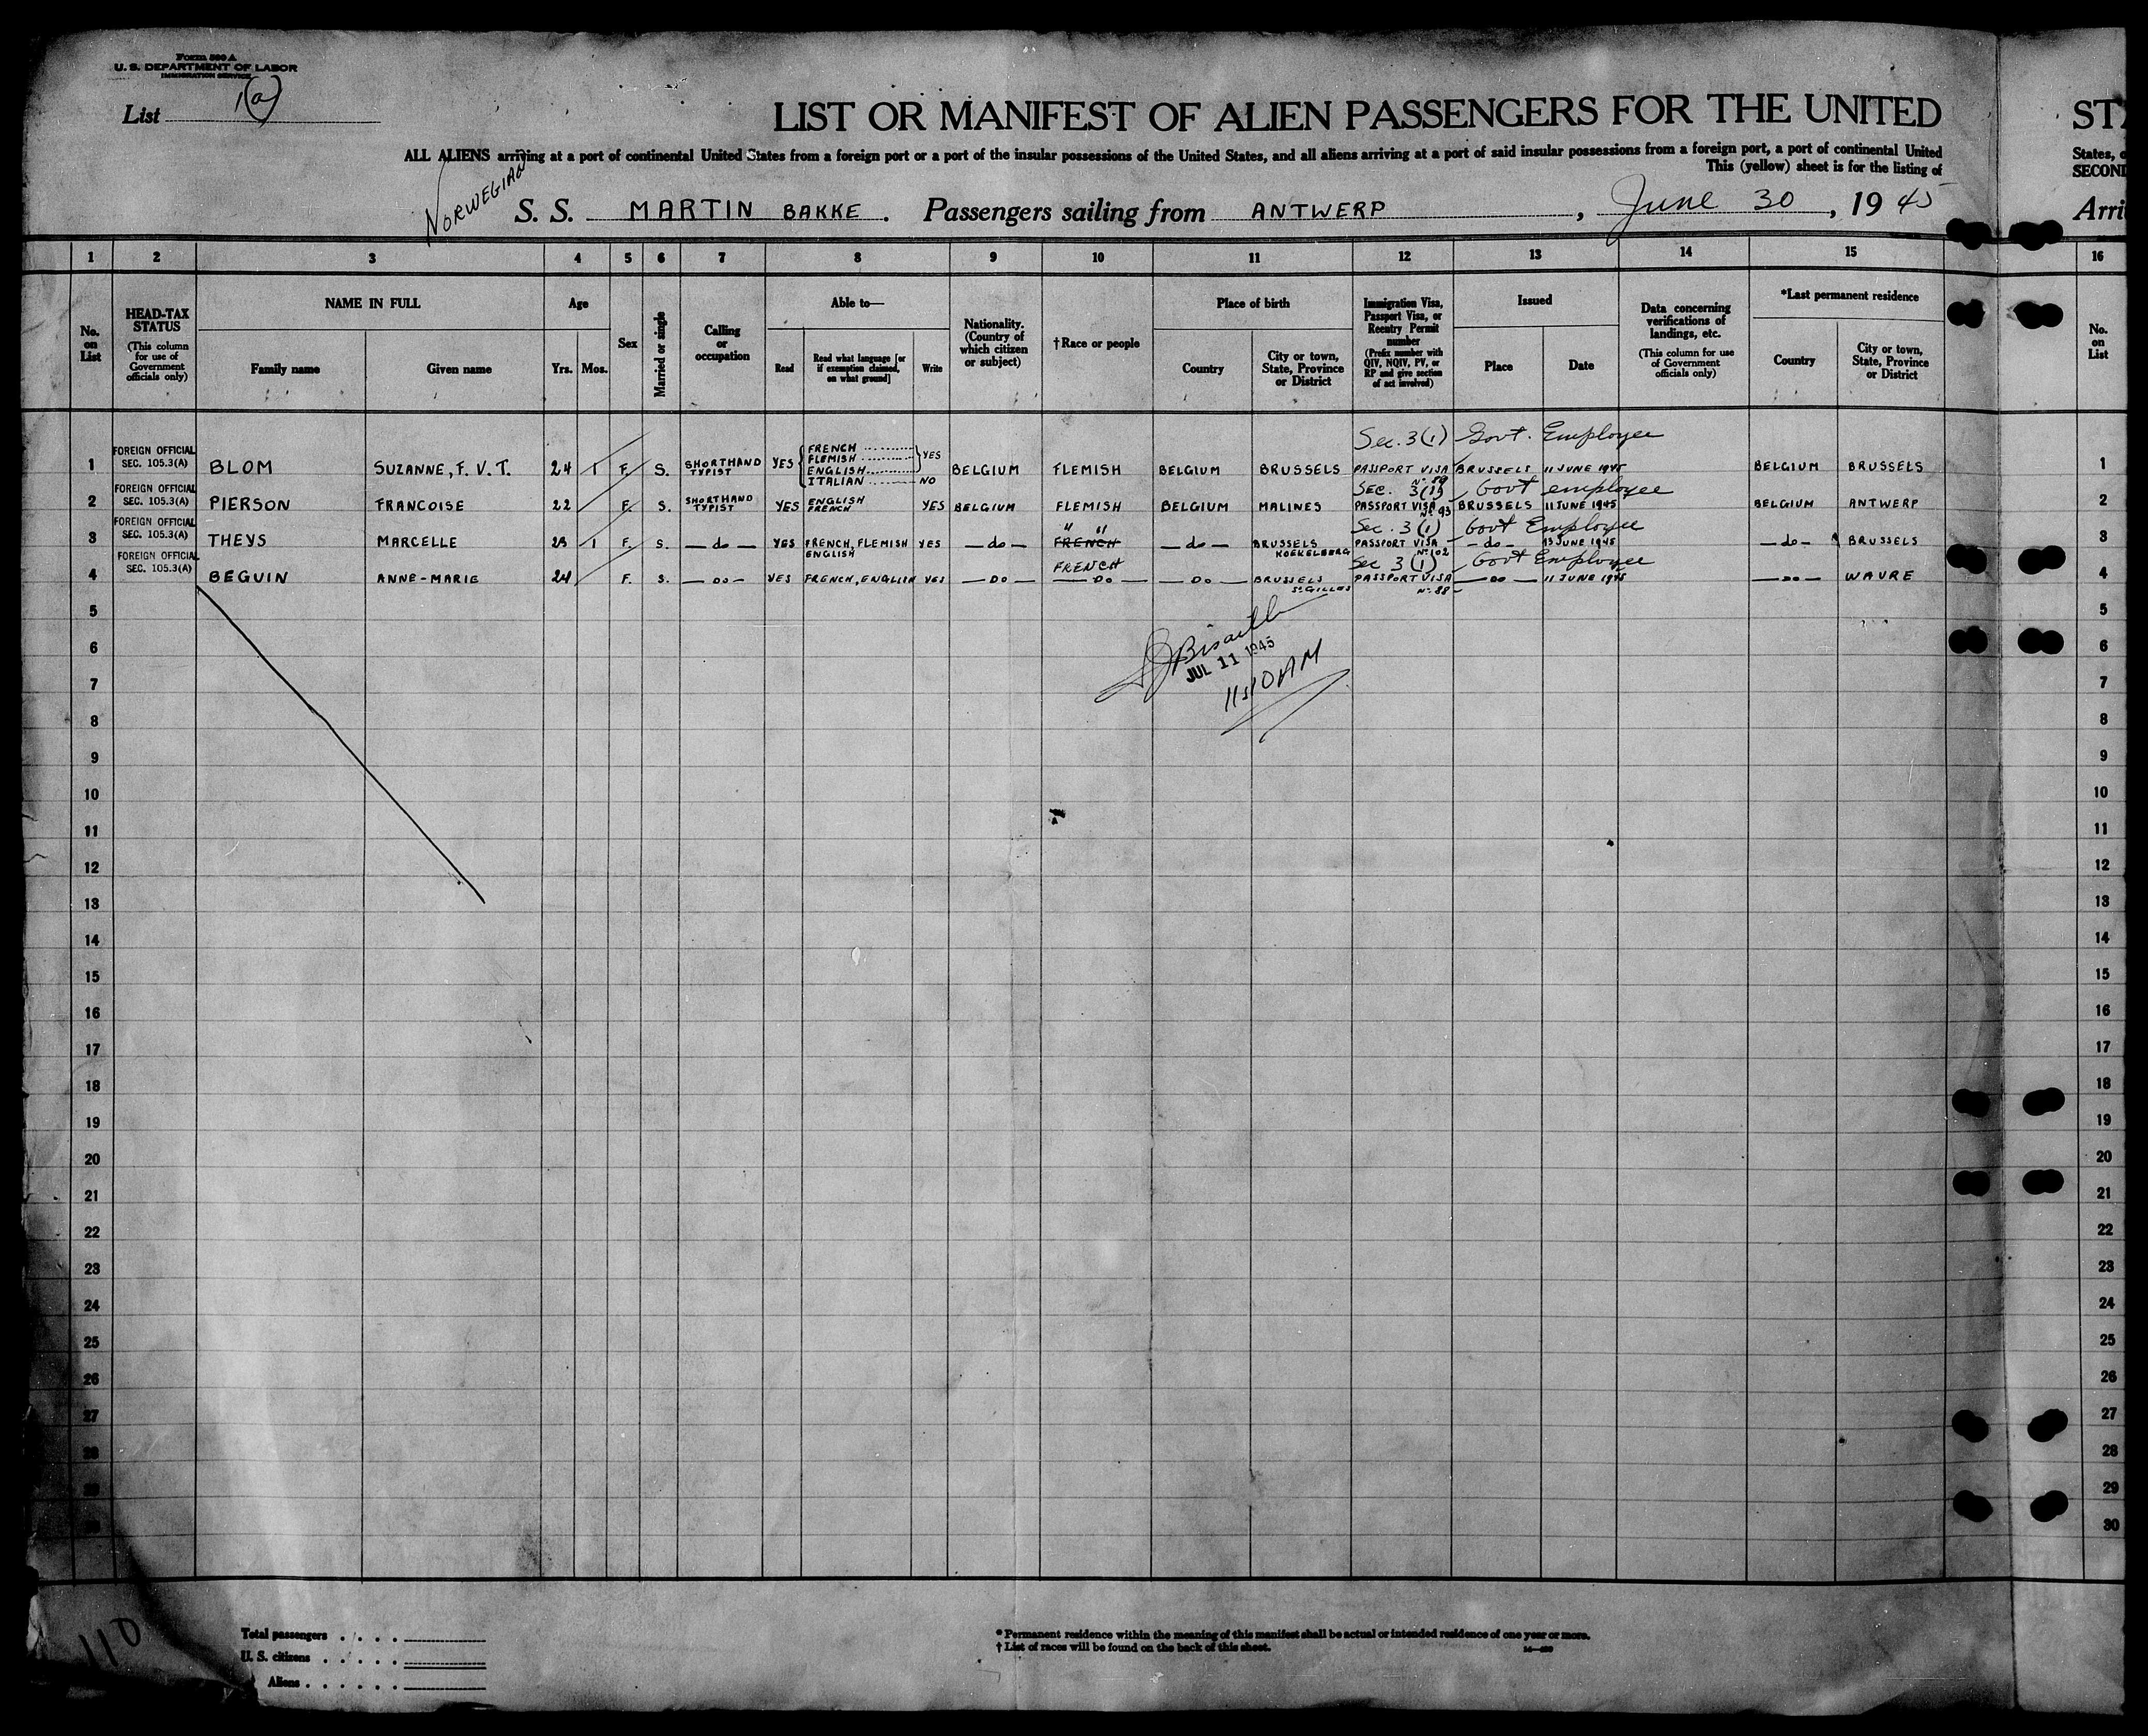 Form 500 A
U. S. DEPARTMENT OF LABOR
IMMIGRATION SERVICE
List 1(a)
LIST OR MANIFEST OF ALIEN PASSENGERS FOR THE UNITED
ALL ALIENS arriving at a port of continental United States from a foreign port or a port of the insular possessions of the United States, and all aliens arriving at a port of said insular possessions from a foreign port, a port of continental United
This (yellow) sheet is for the listing of
STA
States, o
SECOND
NORWEGIAN S. S. MARTIN BAKKE. Passengers sailing from ANTWERP, June 30, 1945
Arri
1 2 3 4 5 6 7 8 9 10 11 12 13 14 15 16
No. on List
HEAD-TAX STATUS
(This column for use of Government officials only)
NAME IN FULL
Family name Given name
Age
Yrs. Mos.
Sex
Married or single
Calling or occupation
Able to—
Read
Read what language [or if exemption claimed, on what ground]
Write
Nationality. (Country of which citizen or subject)
†Race or people
Place of birth
Country
City or town, State, Province or District
Immigration Visa, Passport Visa, or Reentry Permit number
(Prefix number with QIV, NQIV, PV, or RP and give section of act involved)
Issued
Place Date
Data concerning verifications of landings, etc.
(This column for use of Government officials only)
*Last permanent residence
Country
City or town, State, Province or District
No. on List
Sec. 3(1) Govt. Employee
1 FOREIGN OFFICIAL SEC. 105.3(A) BLOM SUZANNE, F. V. T. 24 1 F. S. SHORTHAND TYPIST YES FRENCH FLEMISH ENGLISH YES ITALIAN NO BELGIUM FLEMISH BELGIUM BRUSSELS PASSPORT VISA Nº 89 BRUSSELS 11 JUNE 1945 BELGIUM BRUSSELS 1
SEC. 3(1) Govt employee
2 FOREIGN OFFICIAL SEC. 105.3(A) PIERSON FRANCOISE 22 F. S. SHORTHAND TYPIST YES ENGLISH FRENCH YES BELGIUM FLEMISH BELGIUM MALINES PASSPORT VISA Nº 93 BRUSSELS 11 JUNE 1945 BELGIUM ANTWERP 2
" " Sec. 3(1) Govt Employee
3 FOREIGN OFFICIAL SEC. 105.3(A) THEYS MARCELLE 23 1 F. S. — do — YES FRENCH, FLEMISH ENGLISH YES — do — FRENCH — do — BRUSSELS KOEKELBERG PASSPORT VISA Nº 102 — do — 13 JUNE 1945 — do — BRUSSELS 3
FRENCH Sec 3(1) Govt Employee
4 FOREIGN OFFICIAL SEC. 105.3(A) BEGUIN ANNE-MARIE 24 F. S. — DO — YES FRENCH, ENGLISH YES — DO — — DO — — DO — BRUSSELS St. GILLES PASSPORT VISA Nº 88 — DO — 11 JUNE 1945 — DO — WAVRE 4
5 5
6 6
JUL 11 1945
7 7
11:10 AM
8 8
9 9
10 10
11 11
12 12
13 13
14 14
15 15
16 16
17 17
18 18
19 19
20 20
21 21
22 22
23 23
24 24
25 25
26 26
27 27
28 28
29 29
30 30
110
Total passengers . . . .
U. S. citizens . . . . .
Aliens . . . . . .
* Permanent residence within the meaning of this manifest shall be actual or intended residence of one year or more.
† List of races will be found on the back of this sheet.